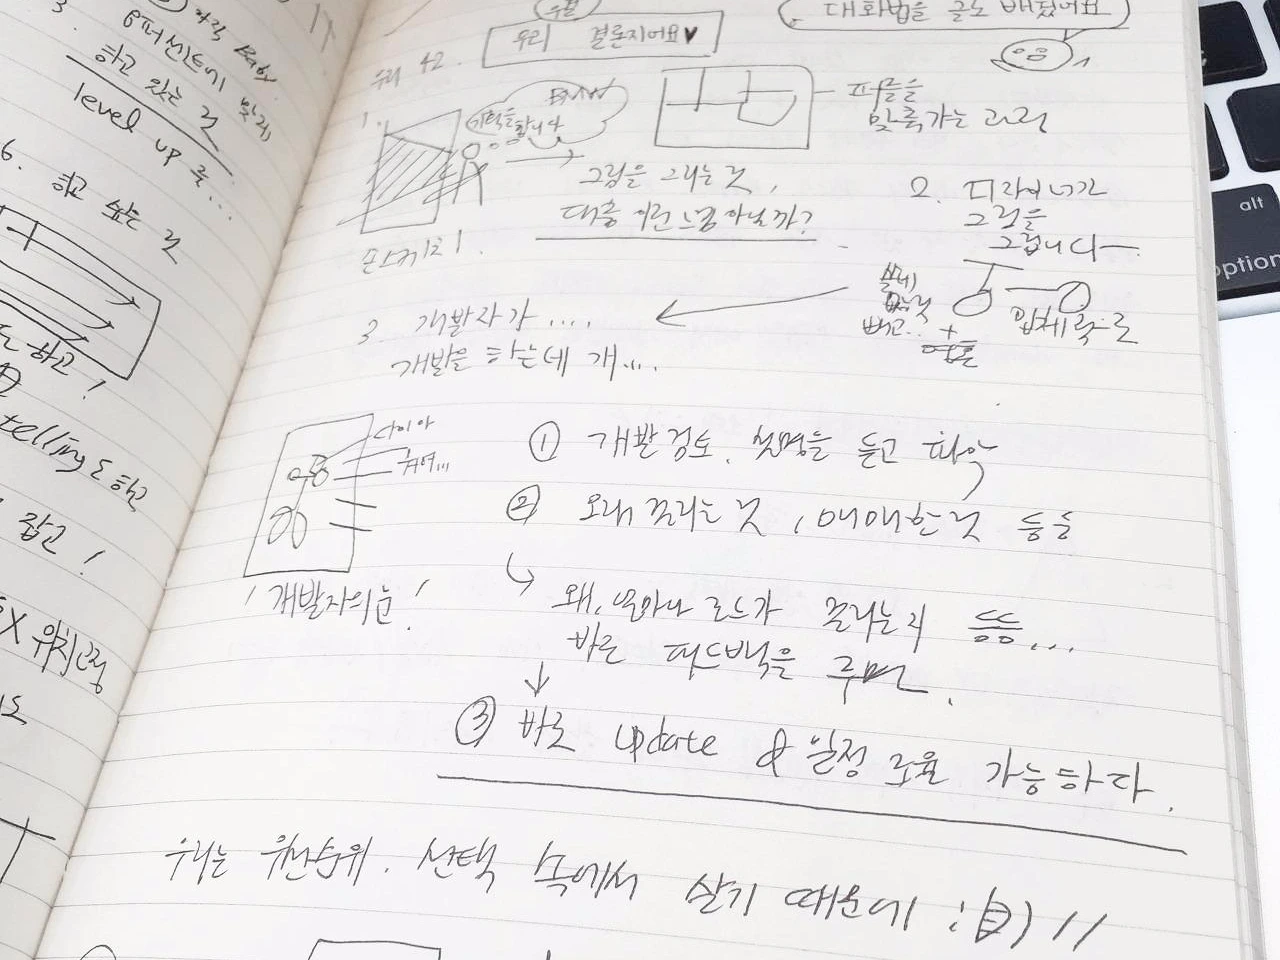 하고 있는 것
level up 을...
6. 하고 싶은 것
도 하고!
telling도 하고
잡고!
위치고정
대화법을 글도 배웠어요
우리 결론지어요♥
우리 42.
1.
BMW
합니다
퍼즐을
맞춰가는 과정
그림을 그리는 것,
대충 이런 느낌 아닐까?
2. 디자이너가
그림을
그립니다—
빼고..
+
입체적으로
3. 개발자가 ....
개발을 하는데 개....
다이아
! 개발자의 눈!
① 개발 검토. 설명을 듣고 파악
② 오래 걸리는 것, 애매한 것 등등
왜, 얼마나 로드가 걸리는지 등등...
바로 피드백을 주면.
③ 바로 update & 일정 조율 가능하다.
우리는 우선순위. 선택 속에서 살기 때문에 :
alt
option